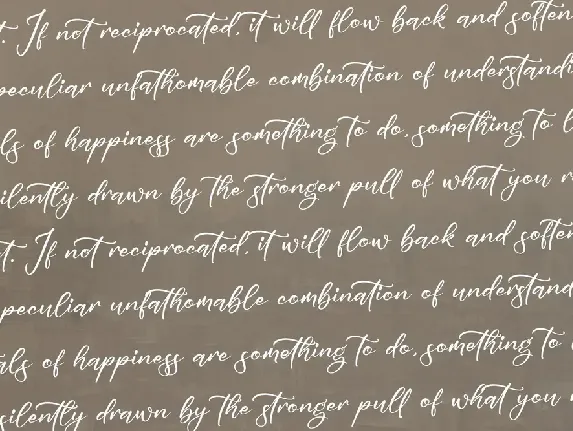 t. If not reciprocated, it will flow back and soften
peculiar unfathomable combination of understandi
ls of happiness are something to do, something to l
silently drawn by the stronger pull of what you r
t. If not reciprocated, it will flow back and soften
peculiar unfathomable combination of understand
als of happiness are something to do, something to
silently drawn by the stronger pull of what you